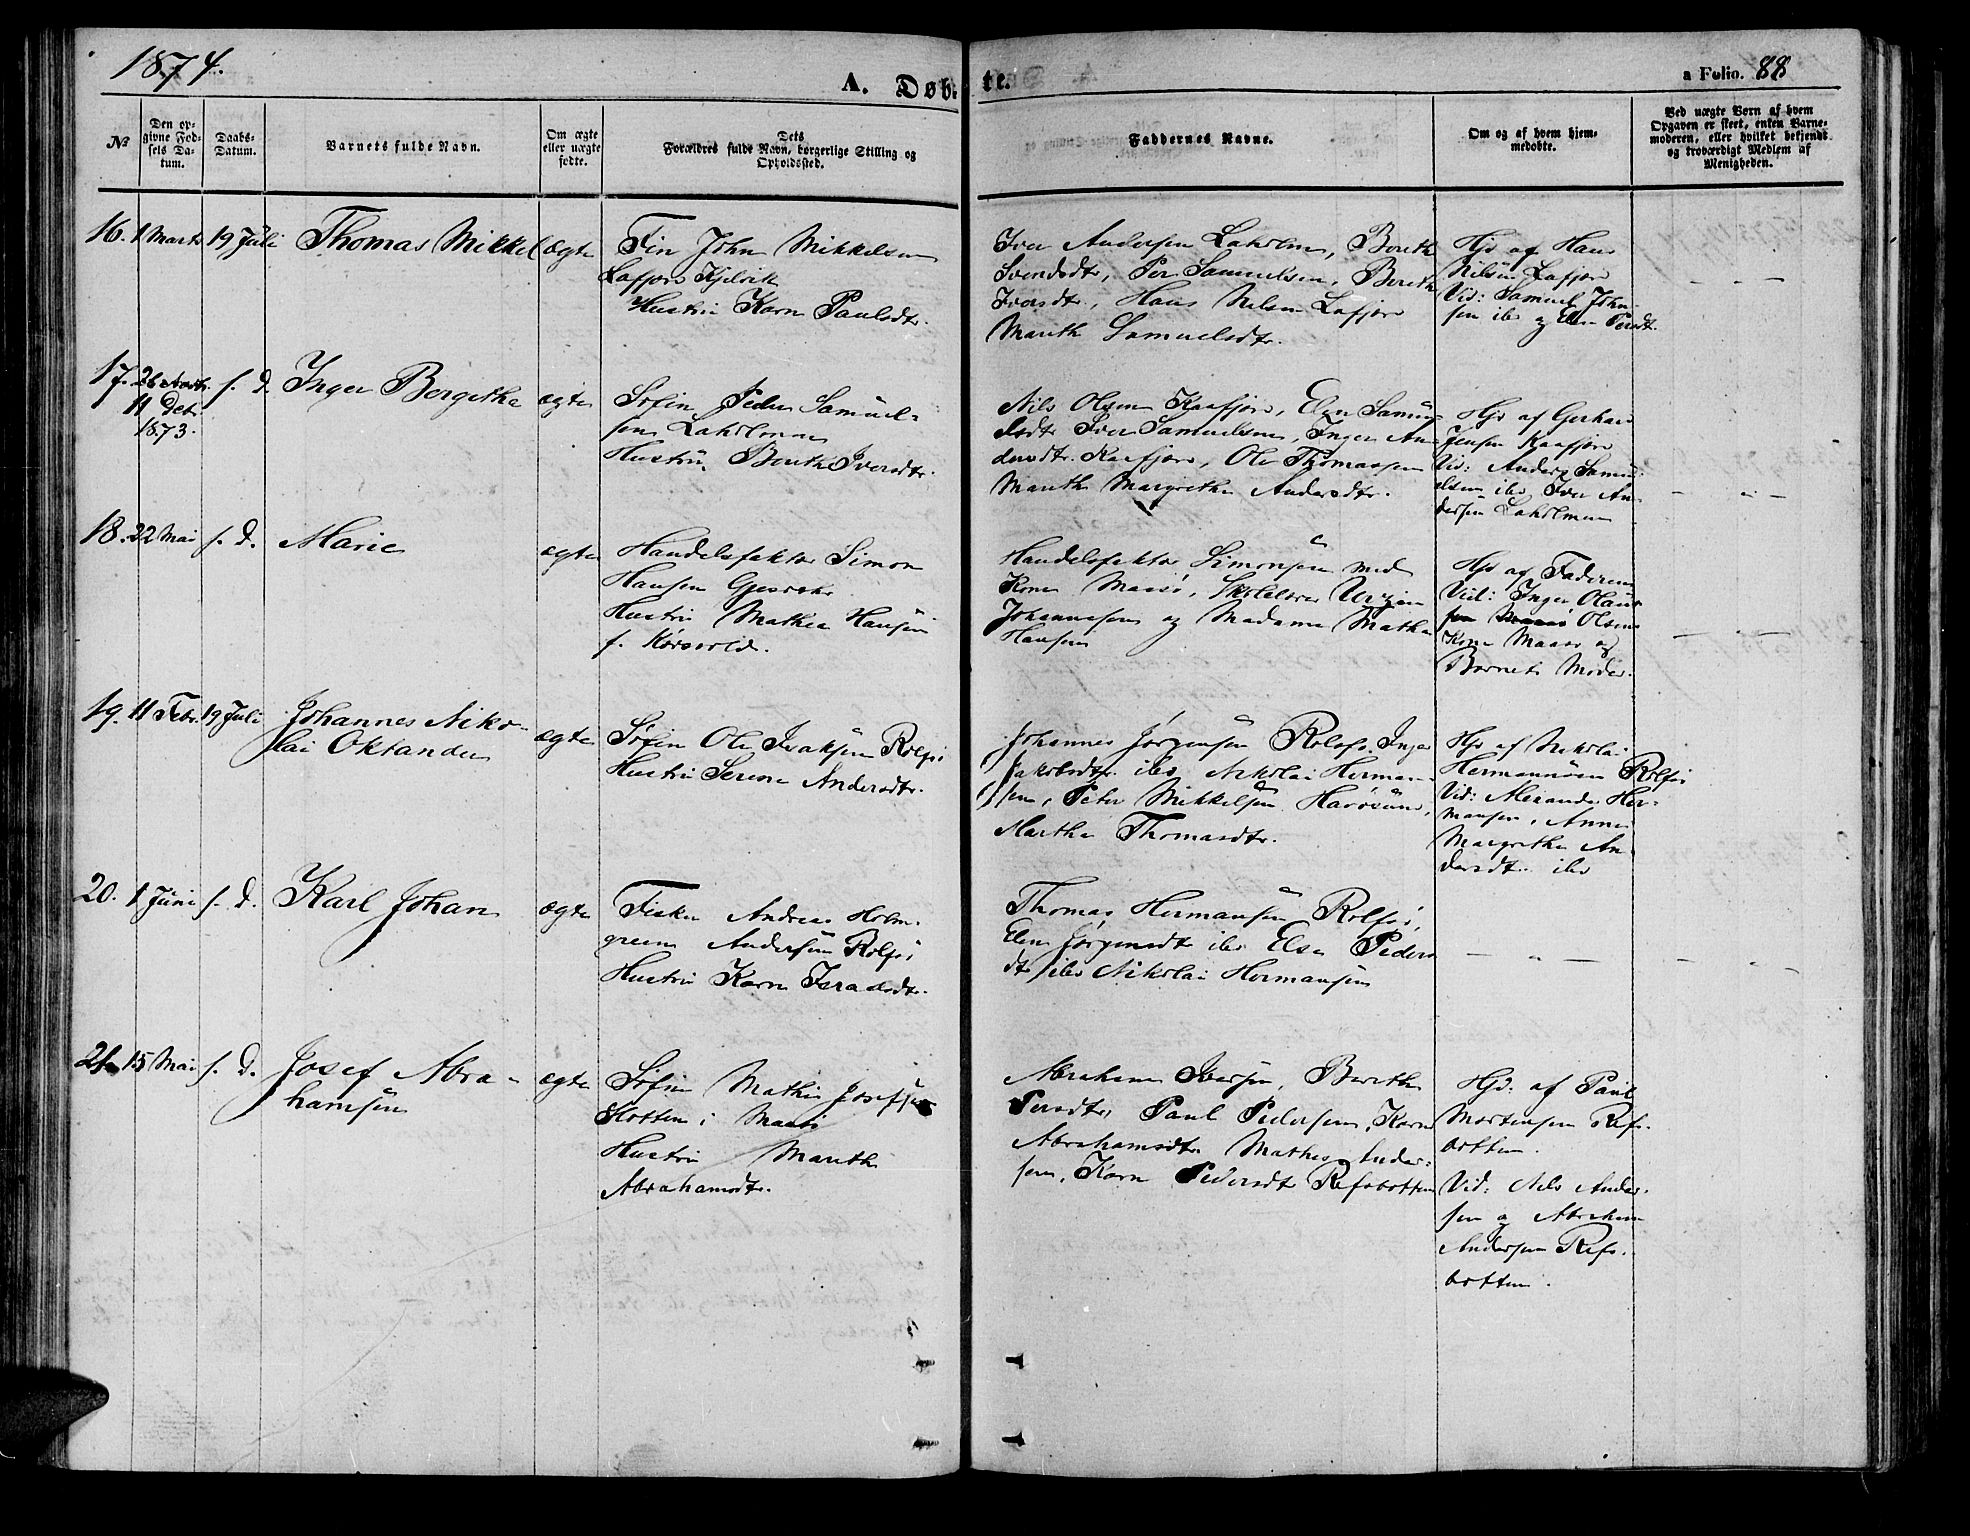 1874.
A. Døb-
te.
a Folio. 88
No
Den op-
givne Fød-
sels Da-
tum.
Daabs-
Datum.
Barnets fulde Navn.
Om ægte
eller uægte
fødte.
Dets
Forældres fulde Navn, borgerlige Stilling og
Opholdssted.
Faddernes Navne.
Om og af hvem hjem-
medøbte.
Ved uægte Børn af hvem
Opgaven er skeet, enten Barne-
moderen, eller hvilket bekjendt
og troværdigt Medlem af
Menigheden.
16. 1 Marts 19 Juli Thomas Mikkel ægte
Fin John Mikkelsen
Lafjord Kjelvik
Hustru Karn Paulsdtr.
Iver Andersen Laholmen, Berith
Svendsdtr, Per Samuelsen, Berith
Iversdtr, Hans Nilsen Lafjord
Marith Samuelsdtr.
Hjd af Hans
Nilsen Lafjord
Vid: Samuel John-
sen ibd og Elen Persdtr.
17. 26
11 Det
1873.
s. D. Inger Bergithe ægte
Søfin Peder Samuel-
sen Laholmen
Hustru Berith Iversdtr.
Nils Olsen Kaafjord, Elen Samu-
elsdtr Iver Samuelsen, Inger An-
dersdtr. Kaafjord, Ole Thomassen
Marith Margrethe Andersdtr.
Hjd af Gerhard
Jensen Kaafjord
Vid: Anders Samu-
elsen ibd Iver An-
dersen Laholmen
18. 22 Mai s. D. Marie ægte
Handelsfaktor Simon
Hansen Gjesvær
Hustru Mathea Hansen
f. Korsvold.
Handelsfaktor Simonsen med
Kone Maasø, Skolelærer
Johannesen og Madame Mathea
Hansen
Hjd af Faderen
Vid: Inger Olaus
Olsens
Kone Maasø og
Barnets Moder.
19. 11 Febr. 19 Juli Johannes Niko-
lai Oktander ægte
Søfin Ole Isaksen Rolfsø
Hustru Serene Andersdtr.
Johannes Jørgensen Rolfsø. Inger
Jakobsdtr. ibd, Nikolai Herman-
sen, Peter Mikkelsen Havøsund,
Martha Thomasdtr.
Hjd af Nikolai
Hermansen Rolfsø
Vid: Alexander Her-
mansen, Anne
Margrethe An-
dersdtr. ibd
20. 1 Juni s. D. Karl Johan ægte
Fisker Andreas Holm-
green Andersen Rolfsø
Hustru Karn Israelsdtr.
Thomas Hermansen Rolfsø,
Elen Jørgensdtr ibd Elsa Peders
dtr ibd Nikolai Hermansen
21. 15 Mai s. D. Josef Abra-
hamsen ægte
Søfin Mathis Josefsen
Slotten i Maasø
Hustru Marith
Abrahamsdtr.
Abraham Iversen, Berith
Persdtr, Paul Pedersen, Karn
Abrahamsdtr Mathis Ander-
sen, Karn Pedersdtr Refsbotten
Hjd: af Paul
Mortensen Refs-
botten.
Vid: Nils Ander-
sen og Abraham
Andersen Refs-
botten.